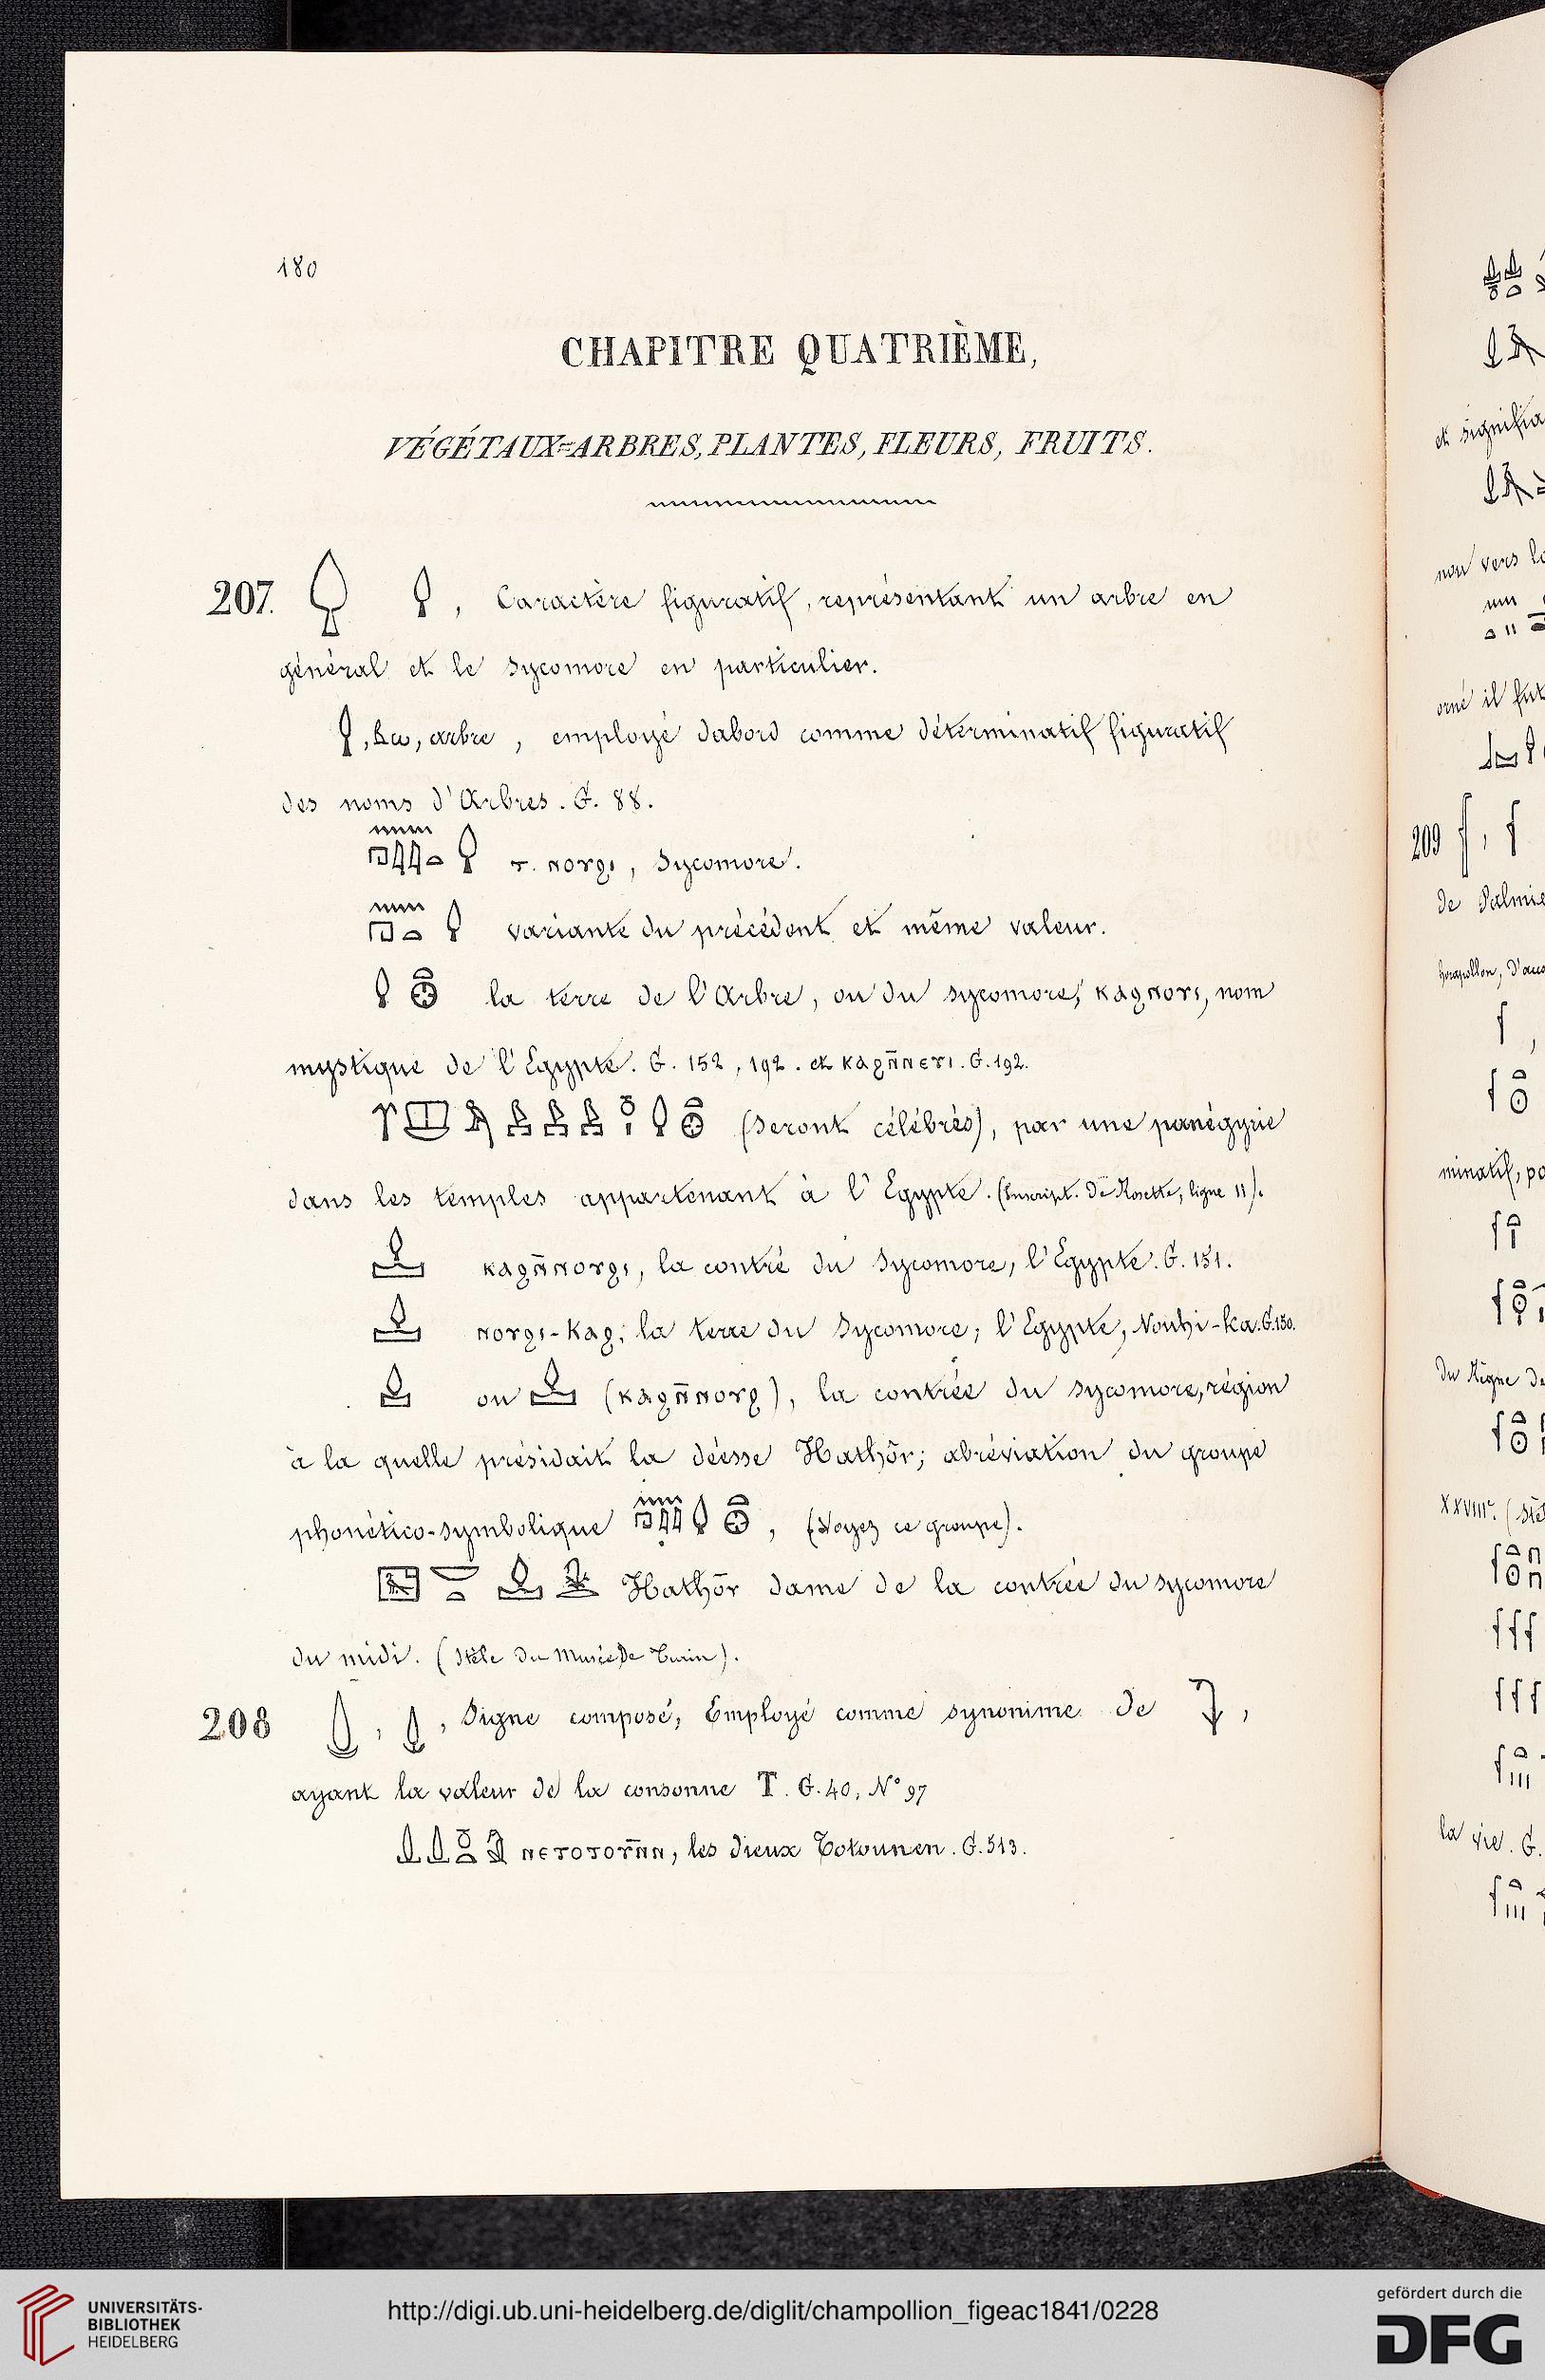 180
CHAPITRE QUATRIÈME,
VÉGÉTAUX=ARBRES, PLANTES, FLEURS, FRUITS.
207. , Caractère figuratif, représentant un arbre en
général et le Sycomore en particulier.
, ⲃⲱ, arbre, employé dabord comme déterminatif figuratif
des noms d'Arbres. G. 88.
ⲧ. ⲛⲟⲩϩⲓ, Sycomore.
variante du précédent et même valeur.
la terre de l'Arbre, ou du sycomore, ⲕⲁϩⲛⲟⲩϩⲓ, nom
mystique de l'Egypte. G. 152, 192. et ⲕⲁϩⲛ̄ⲛⲉⲩⲓ. G. 192.
(Seront célébrés), par une panégyrie
dans les temples appartenant à l'Egypte. (Inscript. de Rosette, ligne 11).
ⲕⲁϩⲛ̄ⲛⲟⲩϩⲓ, la contré du Sycomore, l'Egypte. G. 151.
ⲛⲟⲩϩⲓ-ⲕⲁϩ; la terre du Sycomore; l'Egypte, Nouhi-ka. G. 150.
ou (ⲕⲁϩⲛ̄ⲛⲟⲩϩ), la contrée du sycomore, région
à la quelle présidait la déesse Hathôr; abréviation du groupe
phonético-symbolique , (Voyez ce groupe).
Hathôr dame de la contrée du sycomore
du midi. (Stèle du Musée de Turin).
208 , , Signe composé, Employé comme synonime de ,
ayant la valeur de la consonne T. G. 40, N° 97
ⲛⲉⲧⲟⲧⲟⲩⲛ̄ⲛ, les dieux Totounen. G. 513.
et signifia
non vers
orné il fut
209
de Palmie
horapollon, d'acco
minatif, po
du Règne de
XXVIIIe. (Stè
la vie. G.
UNIVERSITÄTS-
BIBLIOTHEK
HEIDELBERG
http://digi.ub.uni-heidelberg.de/diglit/champollion_figeac1841/0228
gefördert durch die
DFG